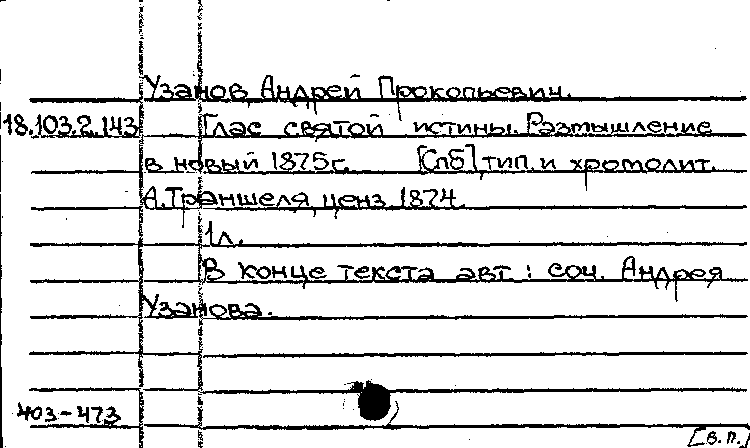 Узанов, Андрей Прокопьевич.
18.103.2.143 Глас святой истины. Размышление
в новый 1875 г. [Спб], тип. и хромолит.
А. Траншеля, ценз. 1874.
1 л.
В конце текста авт : соч. Андрея
Узанова.
403-473
[в.п.]